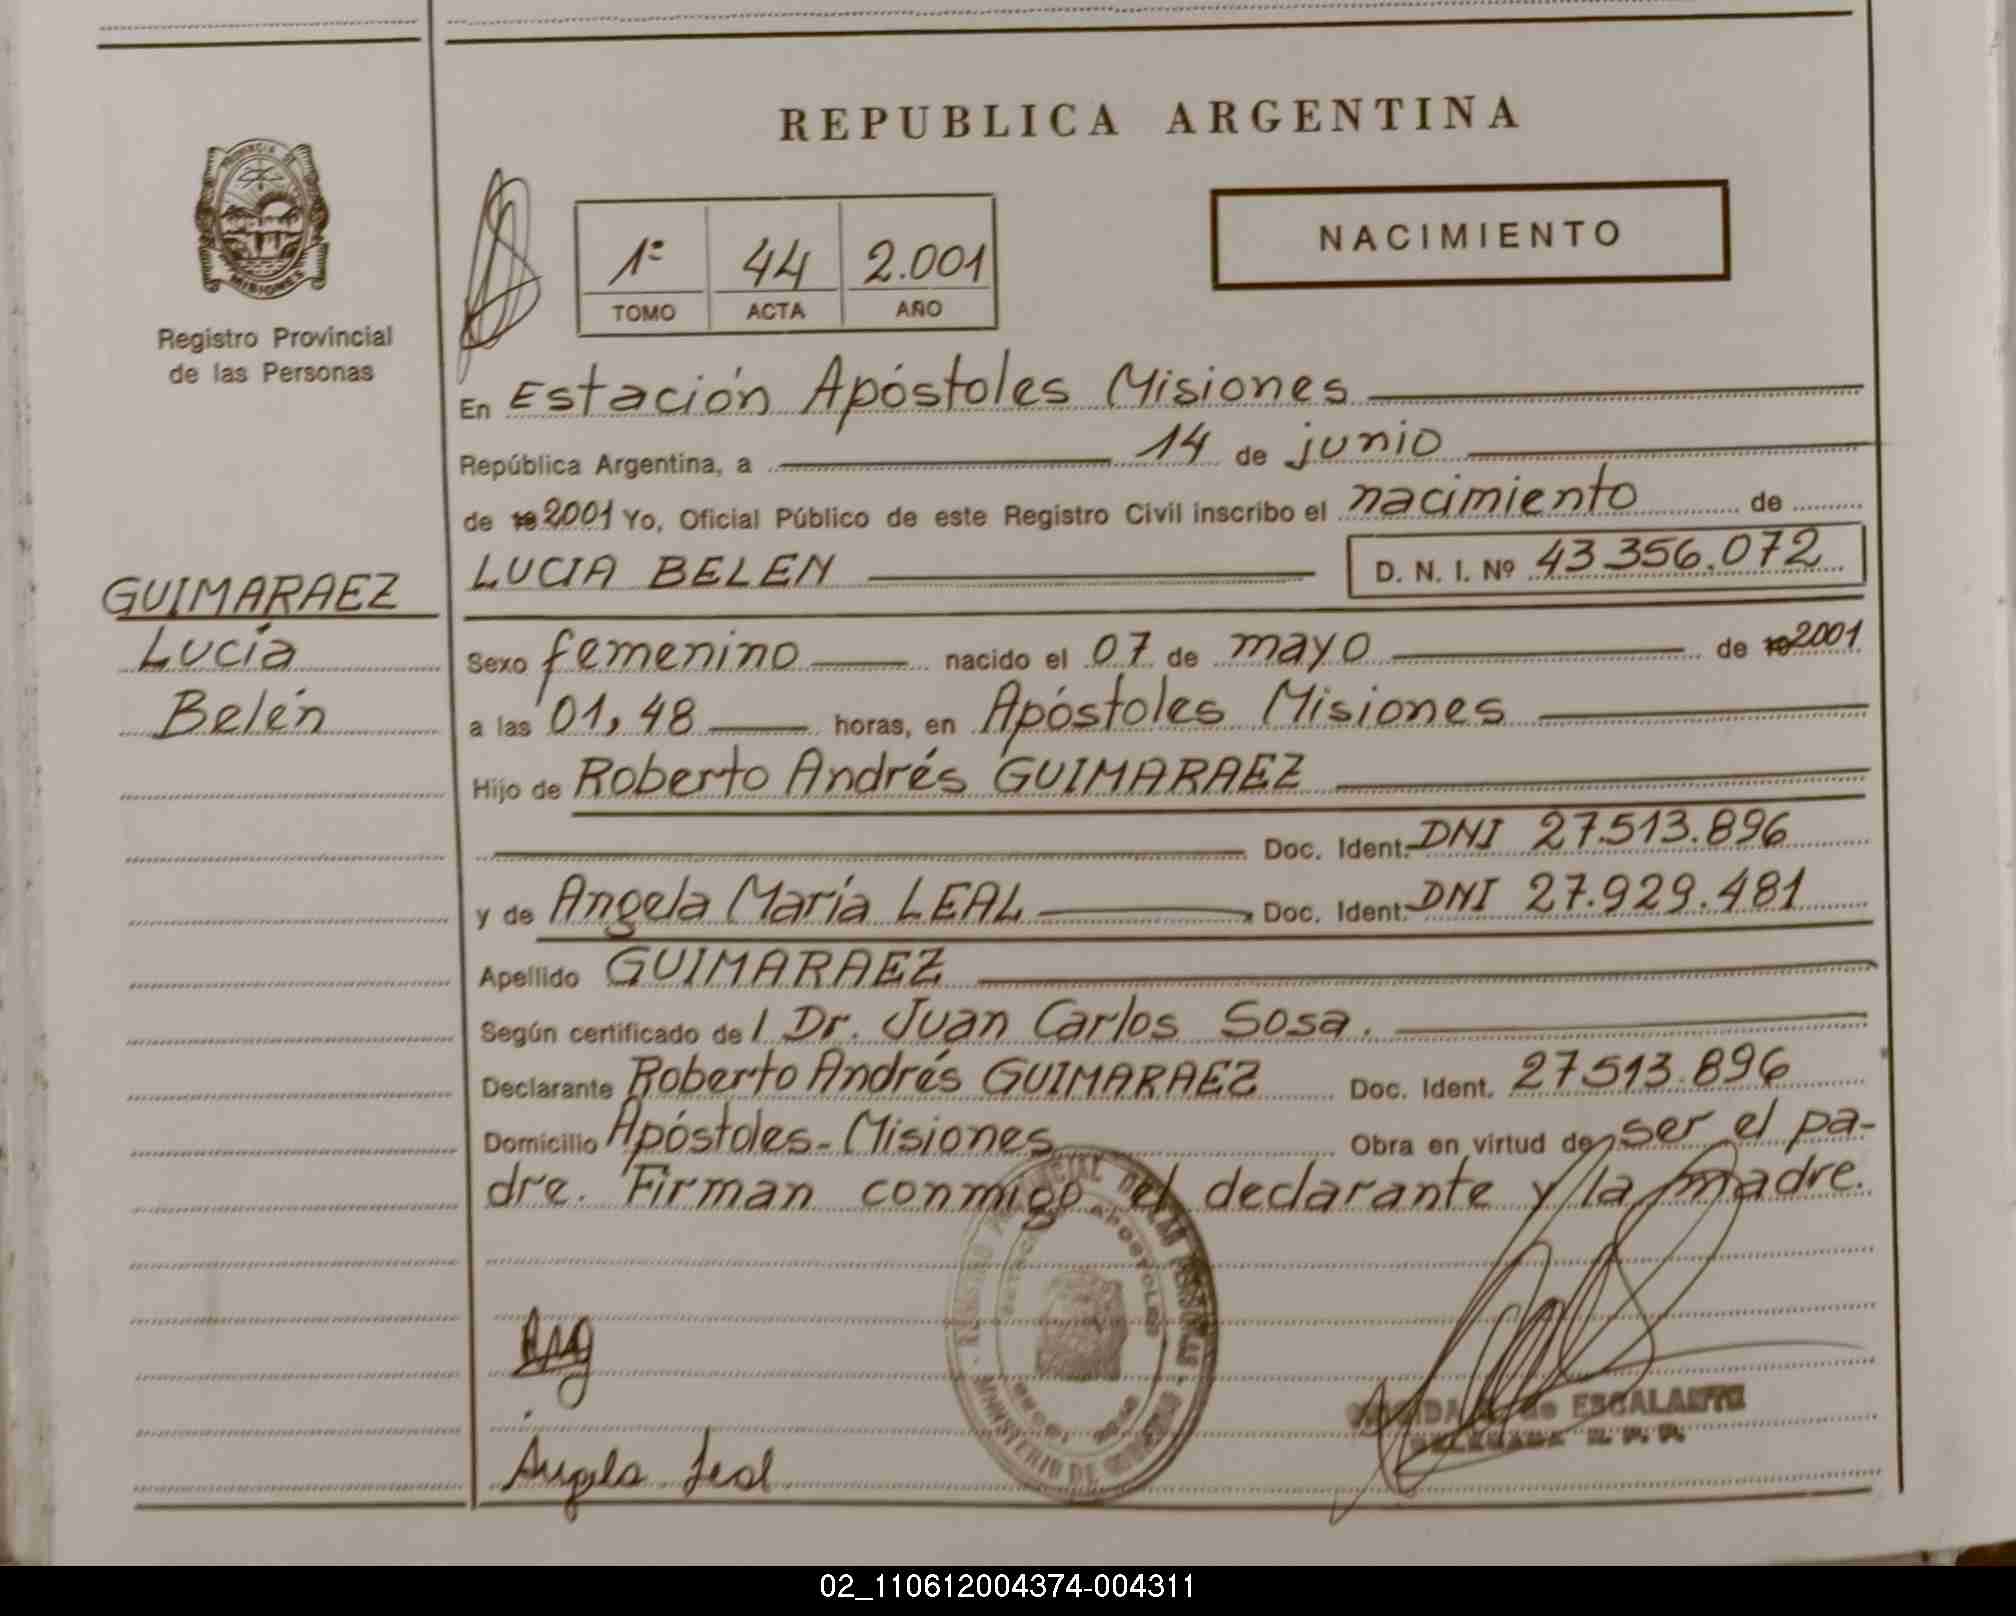 REPUBLICA ARGENTINA
PROVINCIA DE
MISIONES
Registro Provincial
de las Personas
1º 44 2.001
TOMO ACTA AÑO
NACIMIENTO
En Estación Apóstoles Misiones
República Argentina, a 14 de junio
de 19 2001 Yo, Oficial Público de este Registro Civil inscribo el nacimiento de
LUCIA BELEN D. N. I. Nº 43.356.072
GUIMARAEZ
Lucía
Belén
Sexo femenino nacido el 07 de mayo de 19 2001
a las 01,48 horas, en Apóstoles Misiones
Hijo de Roberto Andrés GUIMARAEZ
Doc. Ident. DNI 27.513.896
y de Angela María LEAL Doc. Ident. DNI 27.929.481
Apellido GUIMARAEZ
Según certificado de l Dr. Juan Carlos Sosa.
Declarante Roberto Andrés GUIMARAEZ Doc. Ident. 27513.896
Domicilio Apóstoles - Misiones Obra en virtud de ser el pa-
dre. Firman conmigo el declarante y la madre.
REGISTRO PROVINCIAL DE LAS PERSONAS
APOSTOLES
MINISTERIO DE GOBIERNO
de ESCALANTE
DELEGADA R. P. P.
Angela Leal
02_110612004374-004311